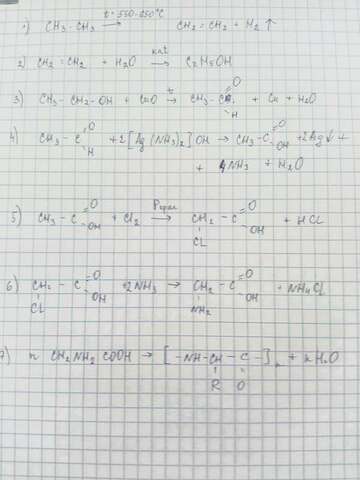 1) CH3-CH3 t=550-650°C → CH2=CH2 + H2↑
2) CH2=CH2 + H2O kat → C2H5OH
3) CH3-CH2-OH + CuO t → CH3-C(=O)-H + Cu + H2O
4) CH3-C(=O)-H + 2[Ag(NH3)2]OH → CH3-C(=O)-OH + 2Ag↓ +
+ 4NH3 + H2O
5) CH3-C(=O)-OH + Cl2 Pкрас → CH2-C(=O)-OH + HCl
Cl
6) CH2-C(=O)-OH + 2NH3 → CH2-C(=O)-OH + NH4Cl
Cl NH2
7) n CH2NH2COOH → [-NH-CH-C-]n + n H2O
R O